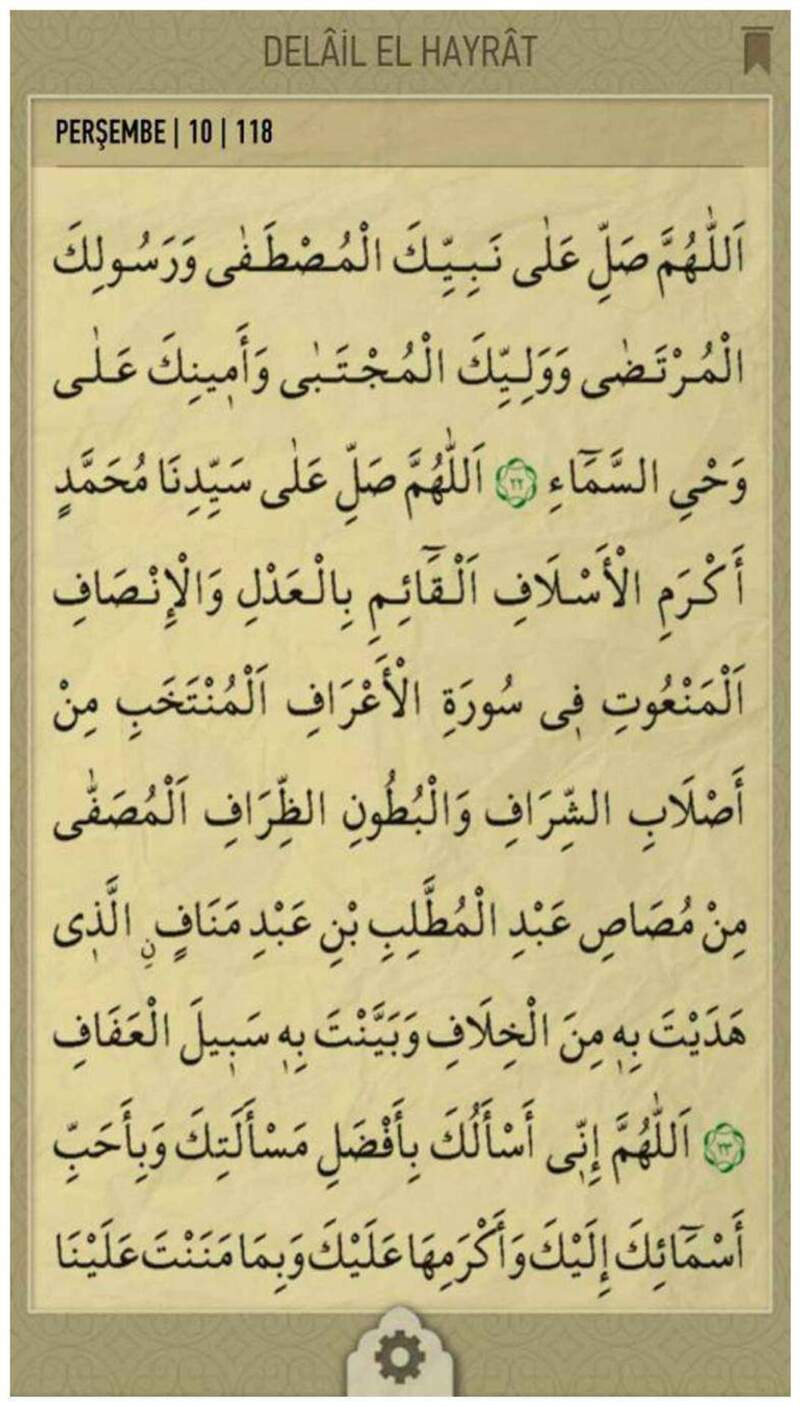 DELÂİL EL HAYRÂT
PERŞEMBE | 10 | 118
اَللّٰهُمَّ صَلِّ عَلٰى نَبِيِّكَ الْمُصْطَفٰى وَرَسُولِكَ
الْمُرْتَضٰى وَوَلِيِّكَ الْمُجْتَبٰى وَأَمٖينِكَ عَلٰى
وَحْيِ السَّمَٓاءِ ﴿٢٢﴾ اَللّٰهُمَّ صَلِّ عَلٰى سَيِّدِنَا مُحَمَّدٍ
أَكْرَمِ الْأَسْلَافِ اَلْقَٓائِمِ بِالْعَدْلِ وَالْإِنْصَافِ
اَلْمَنْعُوتِ فٖى سُورَةِ الْأَعْرَافِ اَلْمُنْتَخَبِ مِنْ
أَصْلَابِ الشِّرَافِ وَالْبُطُونِ الظِّرَافِ اَلْمُصَفّٰى
مِنْ مُصَاصِ عَبْدِ الْمُطَّلِبِ بْنِ عَبْدِ مَنَافٍ نِ الَّذٖى
هَدَيْتَ بِهٖ مِنَ الْخِلَافِ وَبَيَّنْتَ بِهٖ سَبٖيلَ الْعَفَافِ
﴿٢٣﴾ اَللّٰهُمَّ إِنّٖى أَسْأَلُكَ بِأَفْضَلِ مَسْأَلَتِكَ وَبِأَحَبِّ
أَسْمَٓائِكَ إِلَيْكَ وَأَكْرَمِهَا عَلَيْكَ وَبِمَا مَنَنْتَ عَلَيْنَا